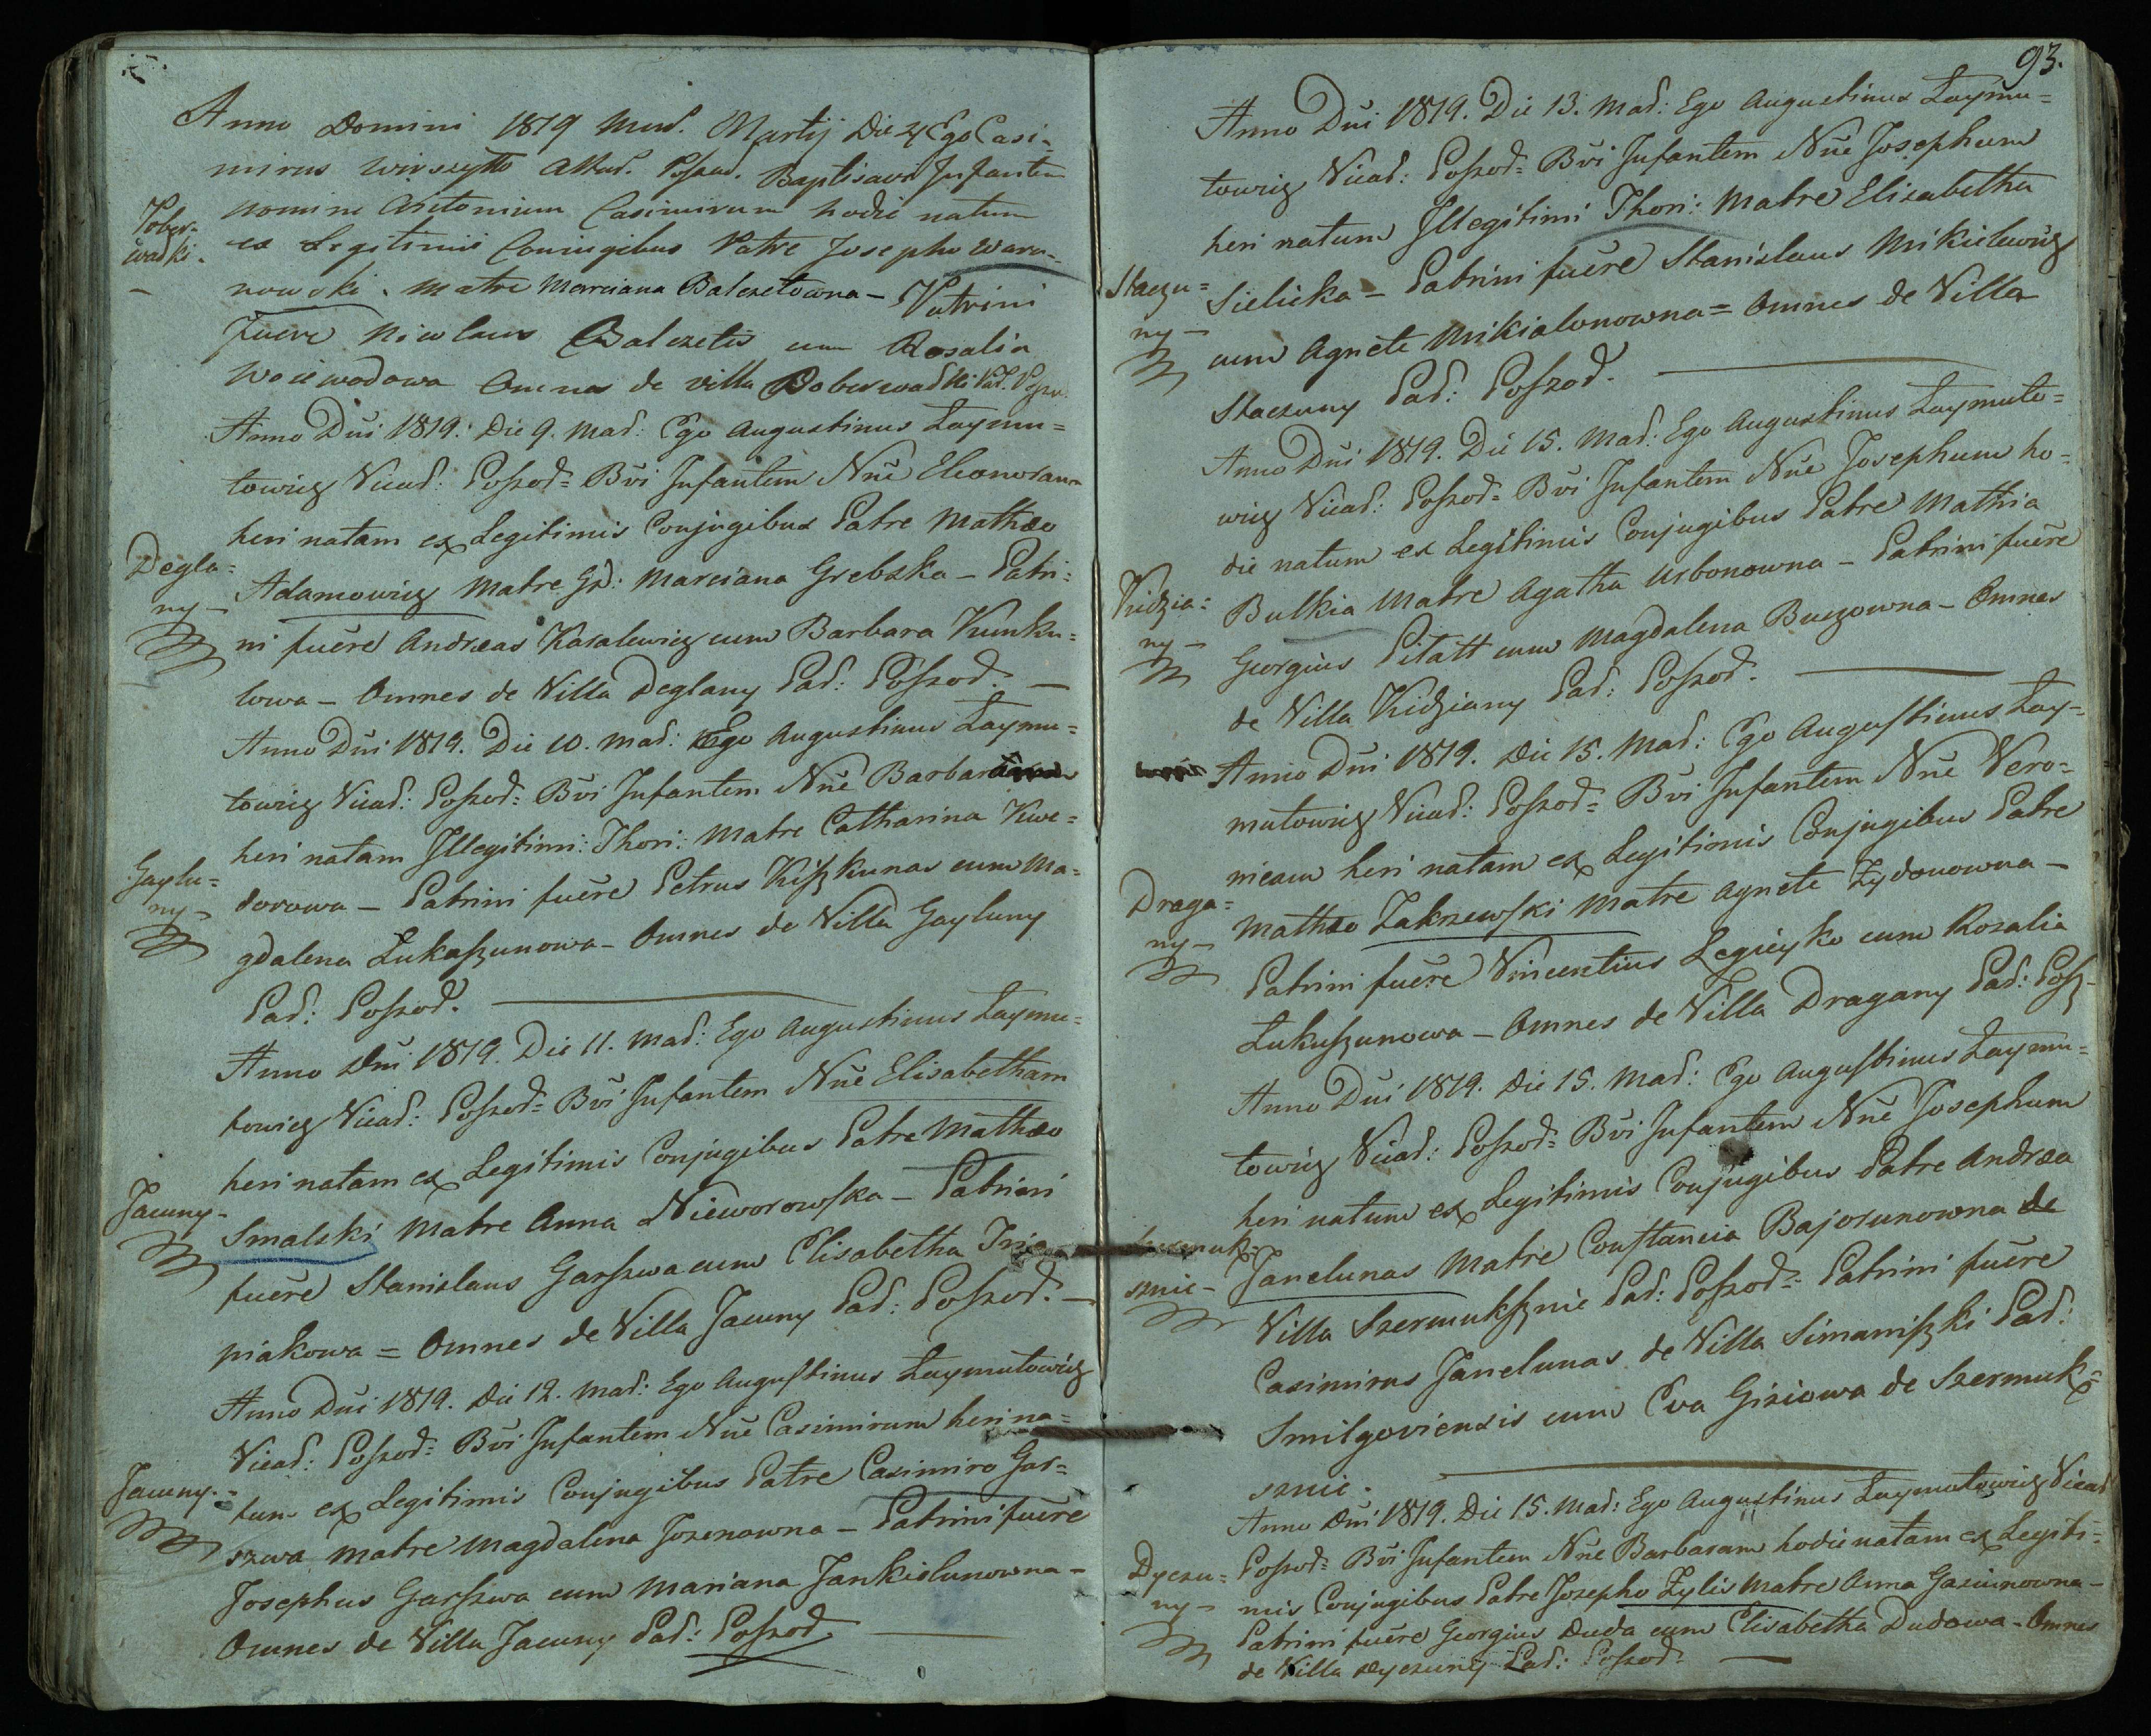 Anno Domini 1819 Mens. Martij Die 4 Ego Casi-
mirus Altar. Poszw. Baptisavi Infantem
Nomine Antonium Casimirum hodie natum
Pober-
wadki.
ex Legitimis Coniugibus Patre Josepho Waru-
nowski. Matre Marciana Balczetowna - Patrini
fuere Nicolaus Balczetis cum Rosalia
Woiewodowa Omnes de villa Poberewadki
Anno Dni 1819. Die 9. Mar: Ego Augustinus Laymu=
towicz Vicar: Poszod= Bvi Infantem Nne Eleonoram
heri natam ex Legitimis Conjugibus Patre Mathæo
Degla=
ny -
Adamowicz Matre Gd: Marciana Grebska - Patri=
ni fuere Andreas Kasalewicz cum Barbara Kunku=
lowa - Omnes de Villa Deglany Par: Poszod. -
Anno Dni 1819. Die 10. Mar: Ego Augustinus Laymu=
towicz Vicar: Poszod= Bvi Infantem Nne Barbaram
heri natam Illegitimi: Thori: Matre Catharina Kwe=
Gaylu=
ny -
dorowa - Patrini fuere Petrus Kiszkunas cum Ma=
gdalena Lukaszunowa - Omnes de Villa Gayluny
Par: Poszod.
Anno Dni 1819. Die 11. Mar: Ego Augustinus Laymu=
towicz Vicar: Poszod= Bvi Infantem Nne Elisabetham
heri natam ex Legitimis Conjugibus Patre Mathæo
Jacuny -
Smalski Matre Anna Nieworowska - Patrini
fuere Stanislaus Garszwa cum Elisabetha
piakowa = Omnes de Villa Jacuny Par: Poszod. -
Anno Dni 1819. Die 12. Mar: Ego Augustinus Laymutowicz
Vicar: Poszod= Bvi Infantem Nne Casimirum heri na=
Jacuny. -
tum ex Legitimis Conjugibus Patre Casimiro Gar=
szwa Matre Magdalena Jozenowna - Patrini fuere
Josephus Garszwa cum Mariana Jankielunowna -
Omnes de Villa Jacuny Par: Poszod.
93.
Anno Dni 1819. Die 13. Mar: Ego Augustinus Laymu=
towicz Vicar: Poszod= Bvi Infantem Nne Josephum
heri natum Illegitimi Thori: Matre Elisabetha
Staczu=
ny -
Sielicka - Patrini fuere Stanislaus Mikielewicz
cum Agnete Mikialonowna = Omnes de Villa
Staczuny Par: Poszod.
Anno Dni 1819. Die 15. Mar: Ego Augustinus Laymuto=
wicz Vicar: Poszod= Bvi Infantem Nne Josephum ho=
die natum ex Legitimis Conjugibus Patre Mathia
Kidzia=
ny -
Bulkia Matre Agatha Urbonowna - Patrini fuere
Georgius Pitatt cum Magdalena Buczowna - Omnes
de Villa Kidziany Par: Poszod.
Anno Dni 1819. Die 15. Mar: Ego Augustinus Lay-
mutowicz Vicar: Poszod= Bvi Infantem Nne Vero=
nicam heri natam ex Legitimis Conjugibus Patre
Draga=
ny -
Mathæo Zakrzewski Matre Agnete Zydonowna -
Patrini fuere Vincentius Legieyko cum Rozalia
Lukuszunowa - Omnes de Villa Dragany Par: Posz-
Anno Dni 1819. Die 15. Mar: Ego Augustinus Laymu=
towicz Vicar: Poszod= Bvi Infantem Nne Josephum
heri natum ex Legitimis Conjugibus Patre Andrea
sznie -
Janelunas Matre Constancia Bajorunowna de
Villa Szermuksznie Par: Poszod= Patrini fuere
Casimirus Janelunas de Villa Simaniszki Par:
Smilgoviensis cum Eva Giziowa de Szermuk=
sznie.
Anno Dni 1819. Die 15. Mar: Ego Augustinus Laymutowicz Vicar
Dyczu=
ny -
Poszod= Bvi Infantem Nne Barbaram hodie natam ex Legiti=
mis Conjugibus Patre Josepho Zylis Matre Anna Gasiunowna -
Patrini fuere Georgius Duda cum Elisabetha Dudowa - Omnes
de Villa Dyczuny Par: Poszod. -